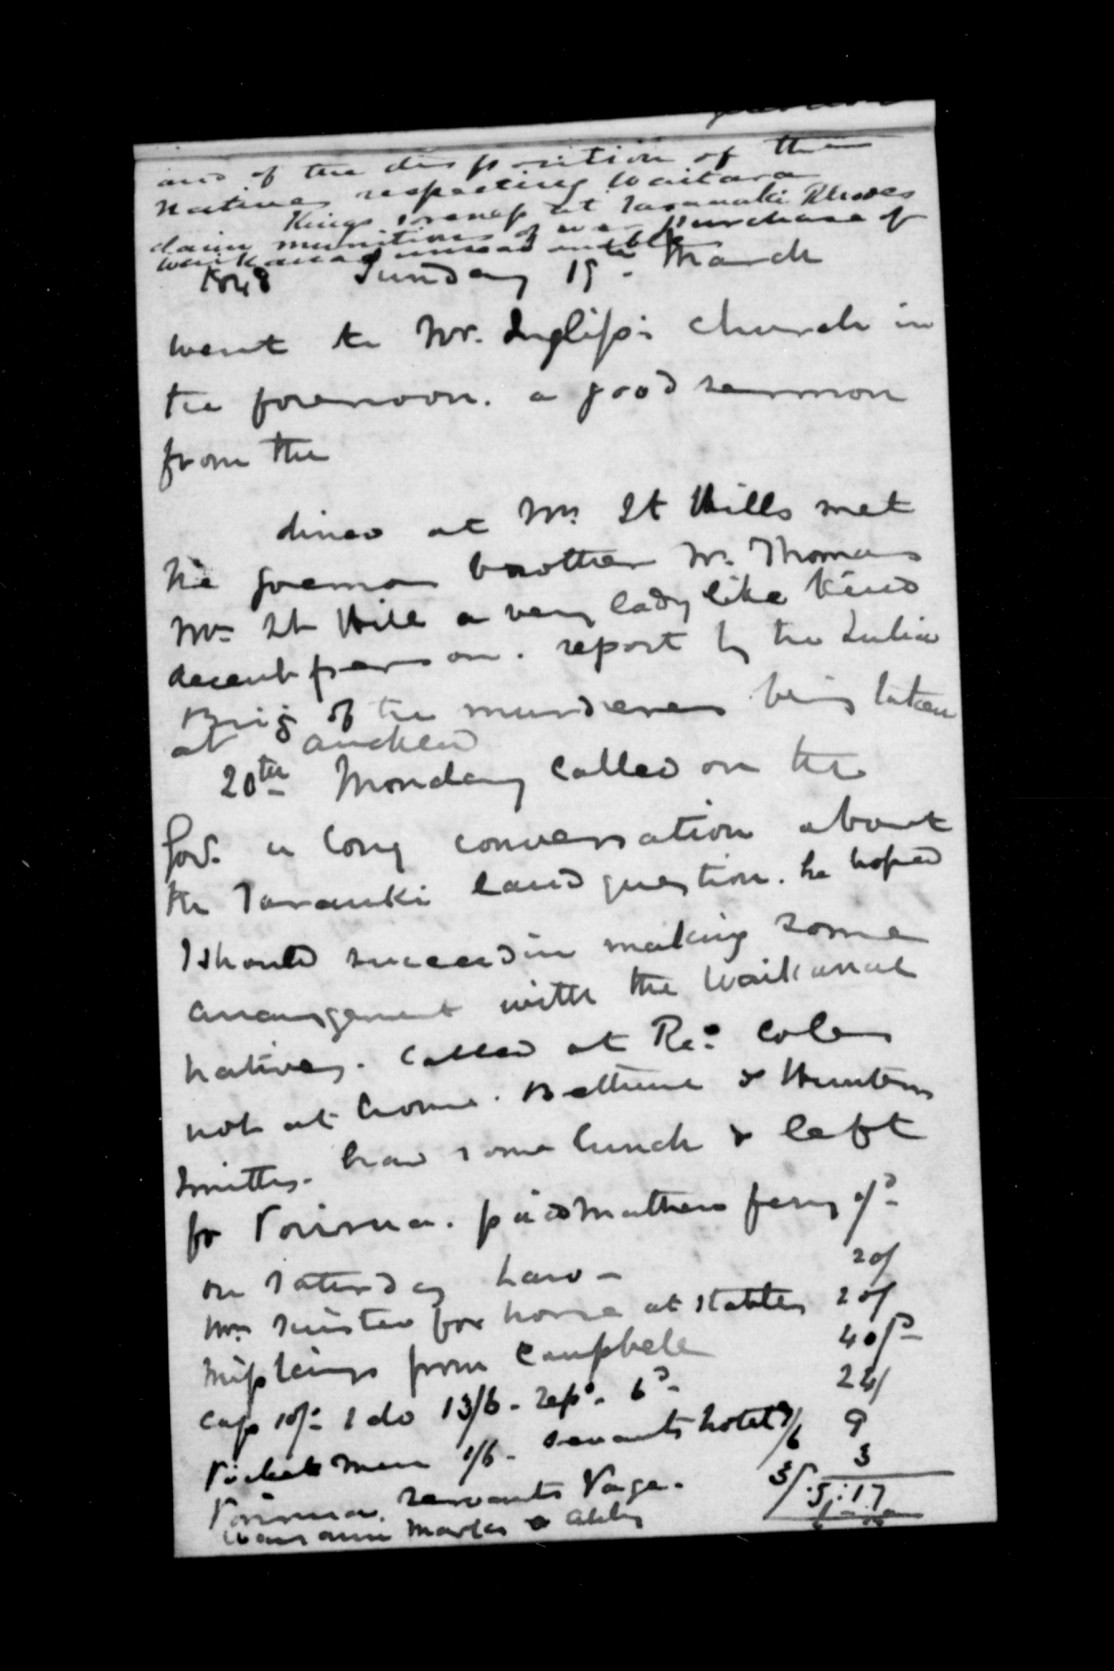 and of the disposition of the
Natives respecting Waitara
Kings at Taranaki Rhodes
claim munitions of war Purchase of
1848 Sunday 19th March
went to Mr. Inglis's church in
the forenoon. a good sermon
from the
dined at Mr St Hills met
his brother Mr. Thomas
Mrs St Hill a very lady like kind
decent person. report by the Julia
Brig of the murderers being taken
at Auckland
20th Monday called on the
Gov. a long conversation about
the Taranaki land question. he hoped
I should succeed in making some
arrangement with the Waikanae
natives. Called at Revd Coles
not at home. Bethune & Hunters
Smiths. had some lunch & left
for Porirua. paid Mathews ferry
on Saturday
Mrs for horse at stables 20/
from Campbell
cap 10/- 1 do 13/6 - 6d 24/
men 1/6 - servants hotel 9
Porirua. servants 3/
5:17